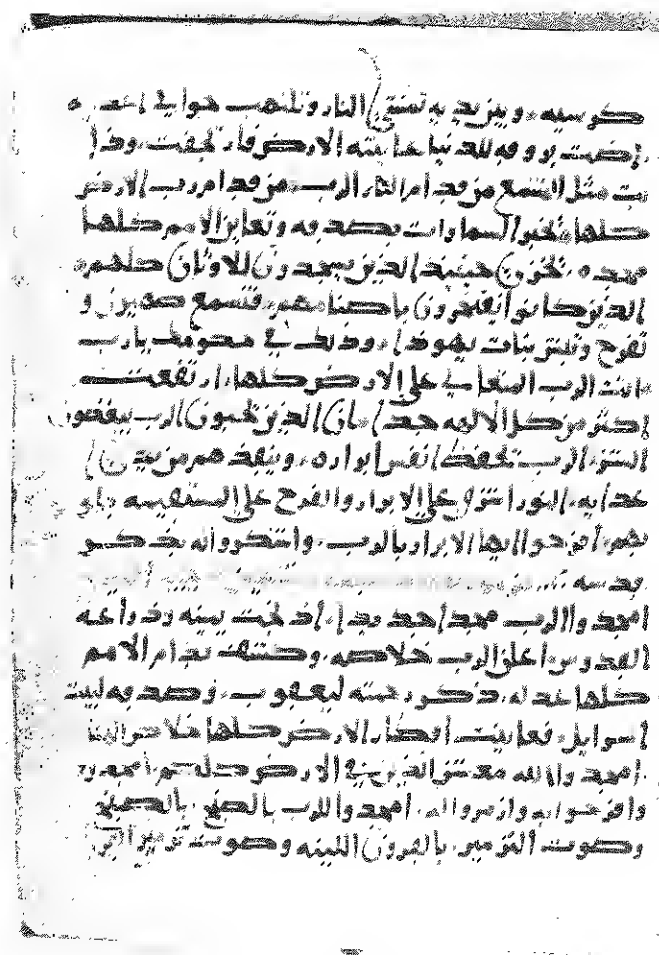 كرسيه، وبين يديه تمشي النار وتلهب حوالي اعداه
اضت بروقه للدنيا عاينته الارض فارتجفت، وذا
بت مثل الشمع من قدام الرب، من قدام رب الارض
كلها، تخبر السماوات بصدقه وتعاين الامم كلها
مجده، تخزون حينيذ الذين يسجدون للاوثان كلهم،
الذين كانوا يفتخرون باصنامهم، فتسمع صهيون و
تفرح وتبتهر بنات يهوذا، وذلك في حكومتك يارب
انت الرب المتعالي على الارض كلها، ارتفعت
اكثر من كل الالهه جدا، بان الذين تحبون الرب يبغضون
الشر، الرب يحفظ انفس ابراره، وينقذهم من يدي
عدايه، النور اشرق على الابرار والفرح على المستقيمه قلو
بهم، افرحوا ايها الابرار بالرب، واشكروا له بذكر
قدسه
امجدوا الرب مجدا جديدا، اذ نجت يمينه وذراعه
القدوس، اعلن الرب خلاصه، وكشف قدام الامم
كلها عدله، ذكر رحمته ليعقوب، وصدقه لبيت
اسرايل، فعاينت اقطار الارض كلها خلاص الهنا
امجدوا لله معشر الذين في الارض كلهم، امجدوا
وافرحوا به وازمروا له، امجدوا للرب بالصنج، بالصنج
وصوت التزمير، بالقرون اللينه وصوت تزمير القرن